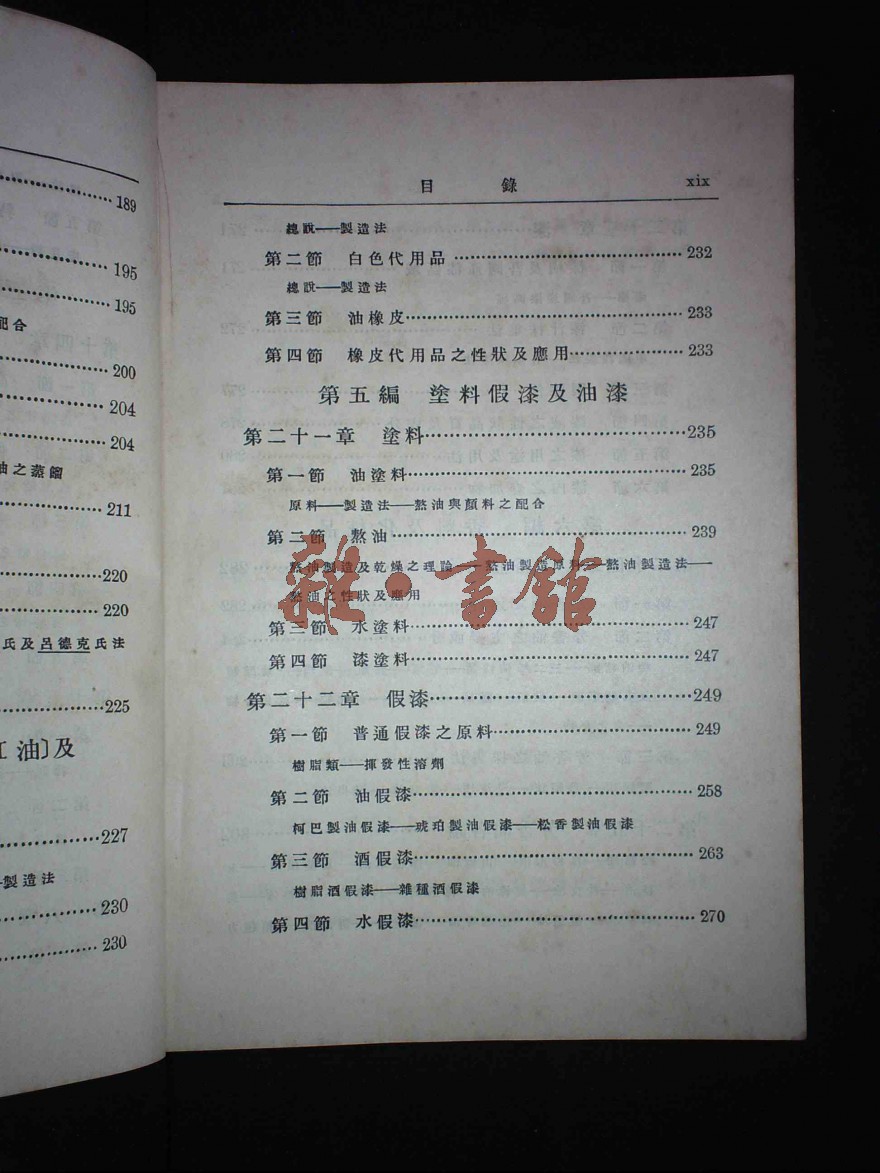 189
195
195
配合
200
204
204
油之蒸餾
211
220
220
氏及呂德克氏法
225
油〕及
227
製造法
230
230
目錄 xix
總說——製造法
第二節 白色代用品……232
總說——製造法
第三節 油橡皮……233
第四節 橡皮代用品之性狀及應用……233
第五編 塗料假漆及油漆
第二十一章 塗料……235
第一節 油塗料……235
原料——製造法——熬油與顏料之配合
第二節 熬油……239
熬油製造及乾燥之理論——熬油製造原料——熬油製造法——
熬油之性狀及應用
第三節 水塗料……247
第四節 漆塗料……247
第二十二章 假漆……249
第一節 普通假漆之原料……249
樹脂類——揮發性溶劑
第二節 油假漆……258
柯巴製油假漆——琥珀製油假漆——松香製油假漆
第三節 酒假漆……263
樹脂酒假漆——雜種酒假漆
第四節 水假漆……270
雜·書館